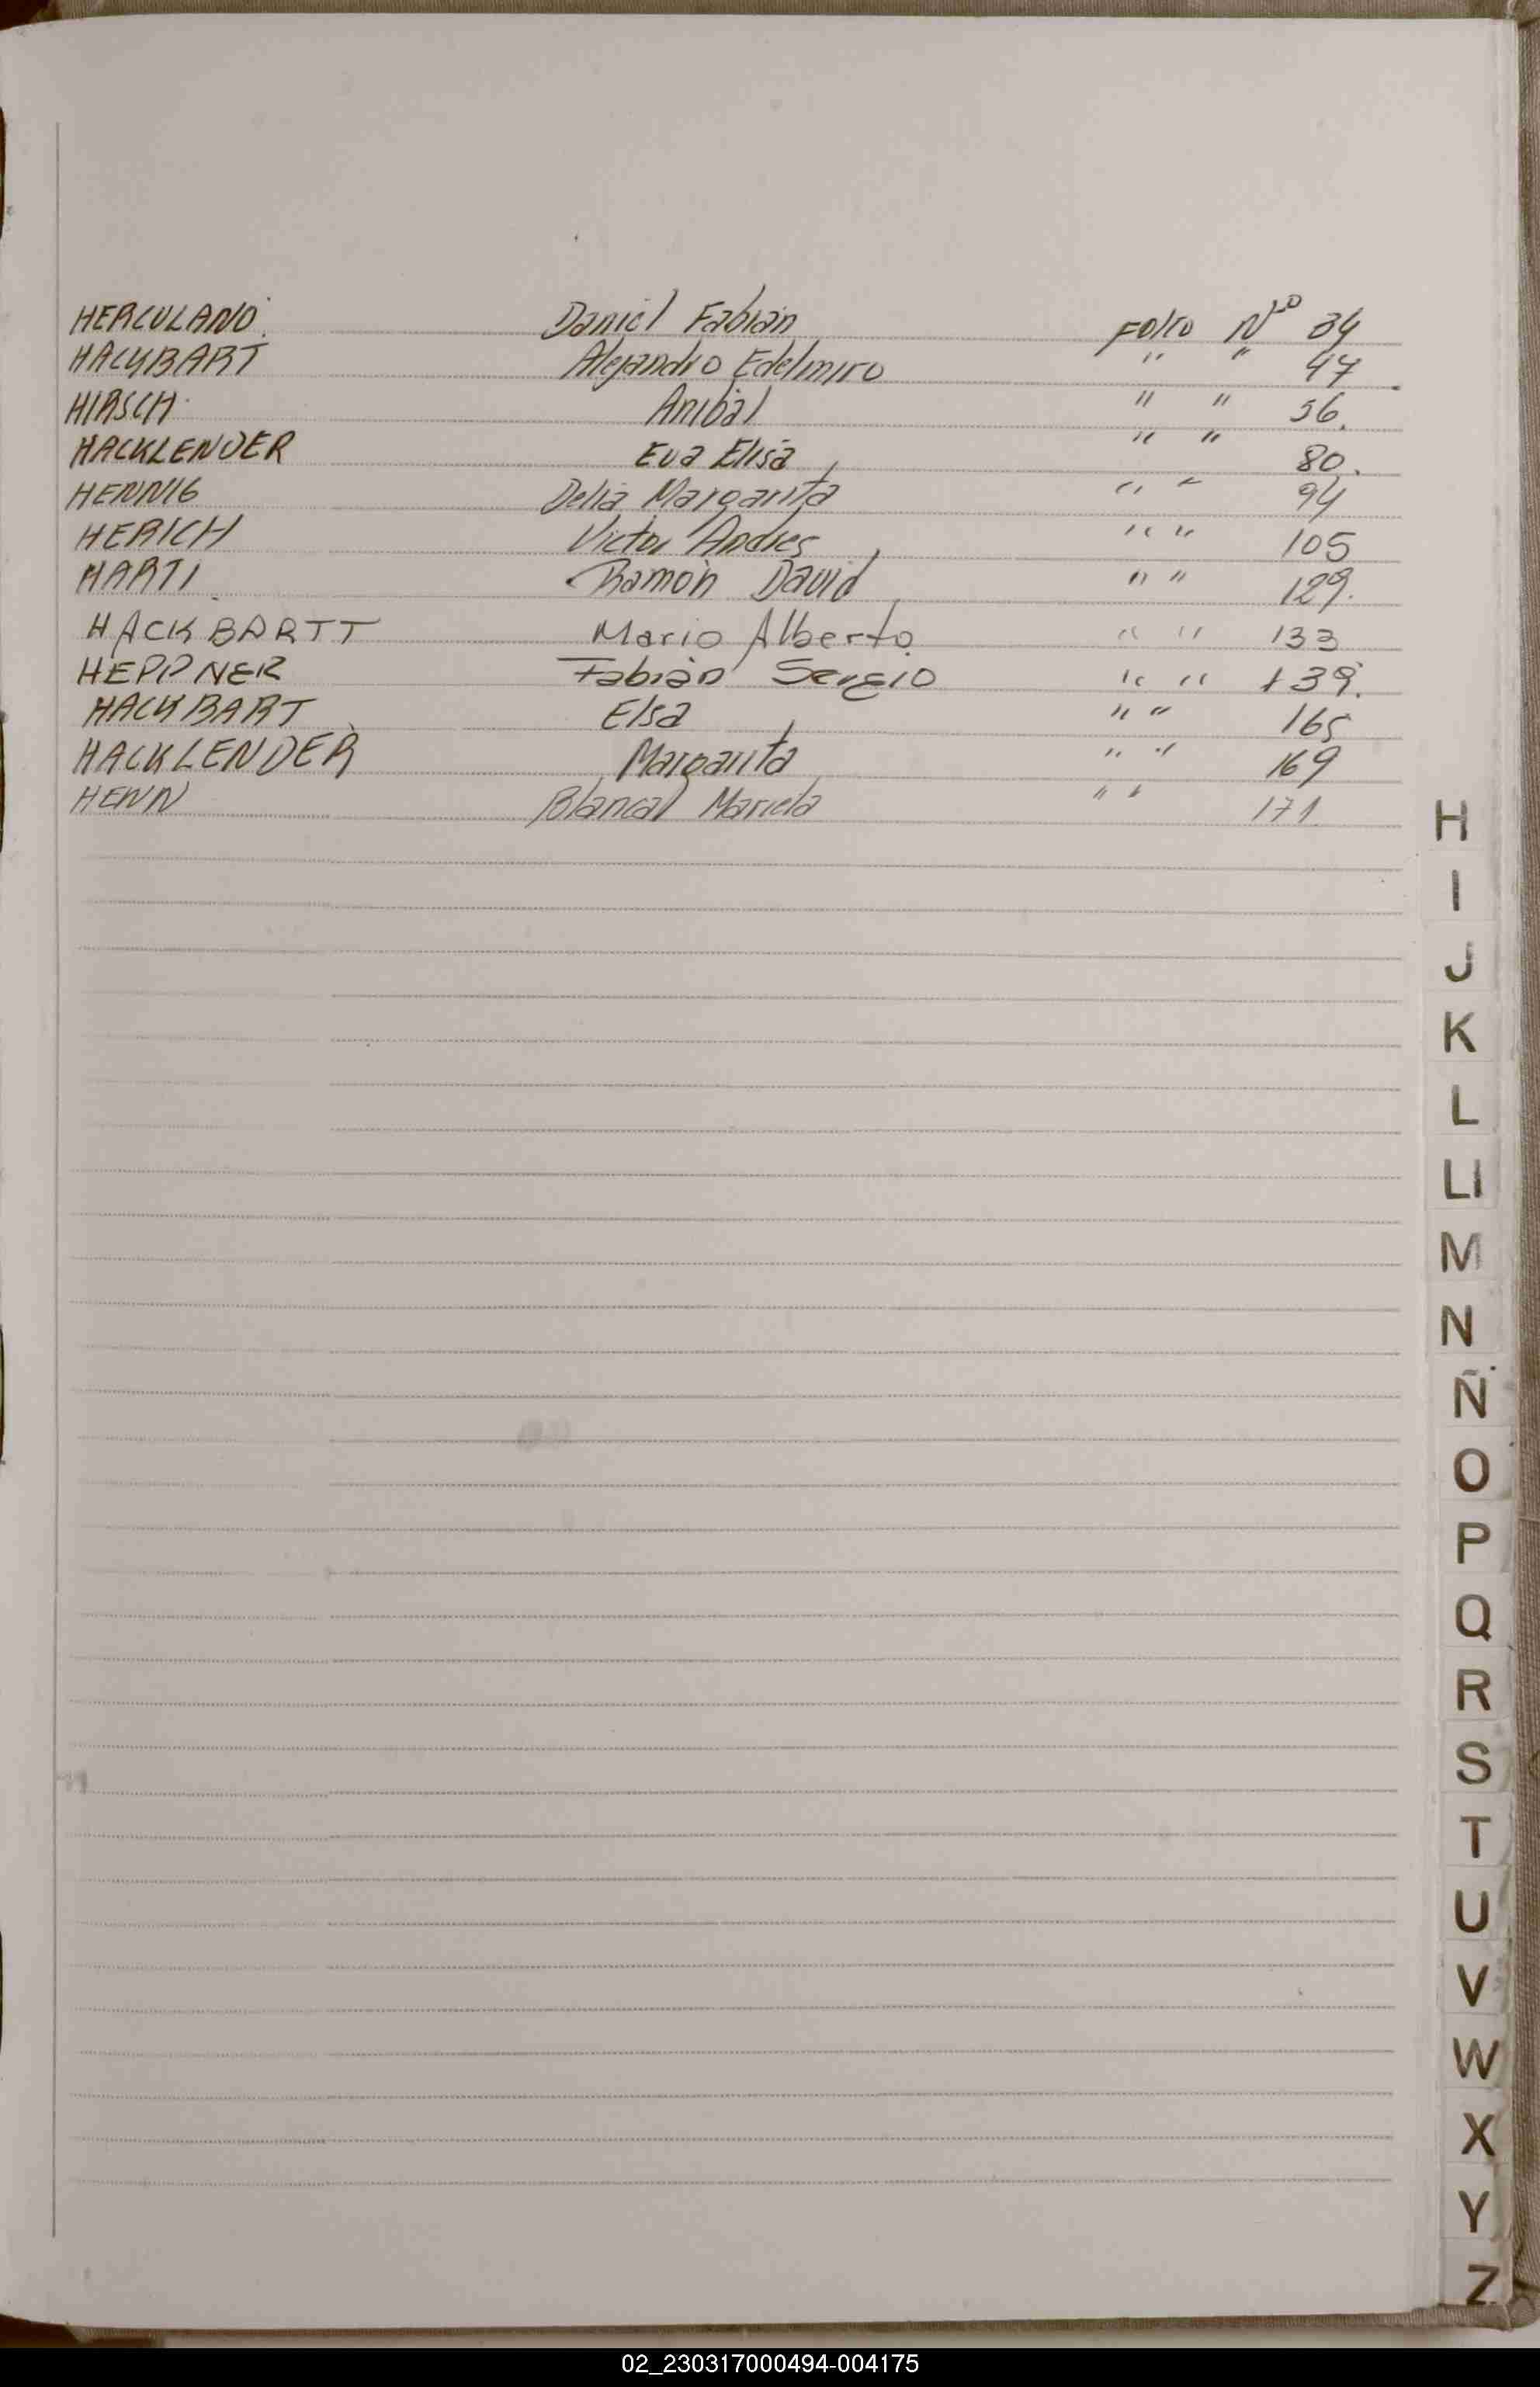 HERCULANO. Daniel Fabián Folio Nº 34
HACKBART Alejandro Edelmiro " " 47
HIRSCH. Anibal " " 56.
HACKLENDER Eva Elisa " " 80.
HENNIG Delia Margarita " " 94
HERICH Victor Andres " " 105
HARTI. Ramón David " " 129.
HACKBARTT Mario Alberto. " " 133
HEPPNER Fabián Sergio " " 139.
HACKBART Elsa " " 165
HACKLENDER Margarita " " 169
HENN Mariela " " 171
H
I
J
K
L
Ll
M
N
Ñ
O
P
Q
R
S
T
U
V
W
X
Y
Z
02_230317000494-004175